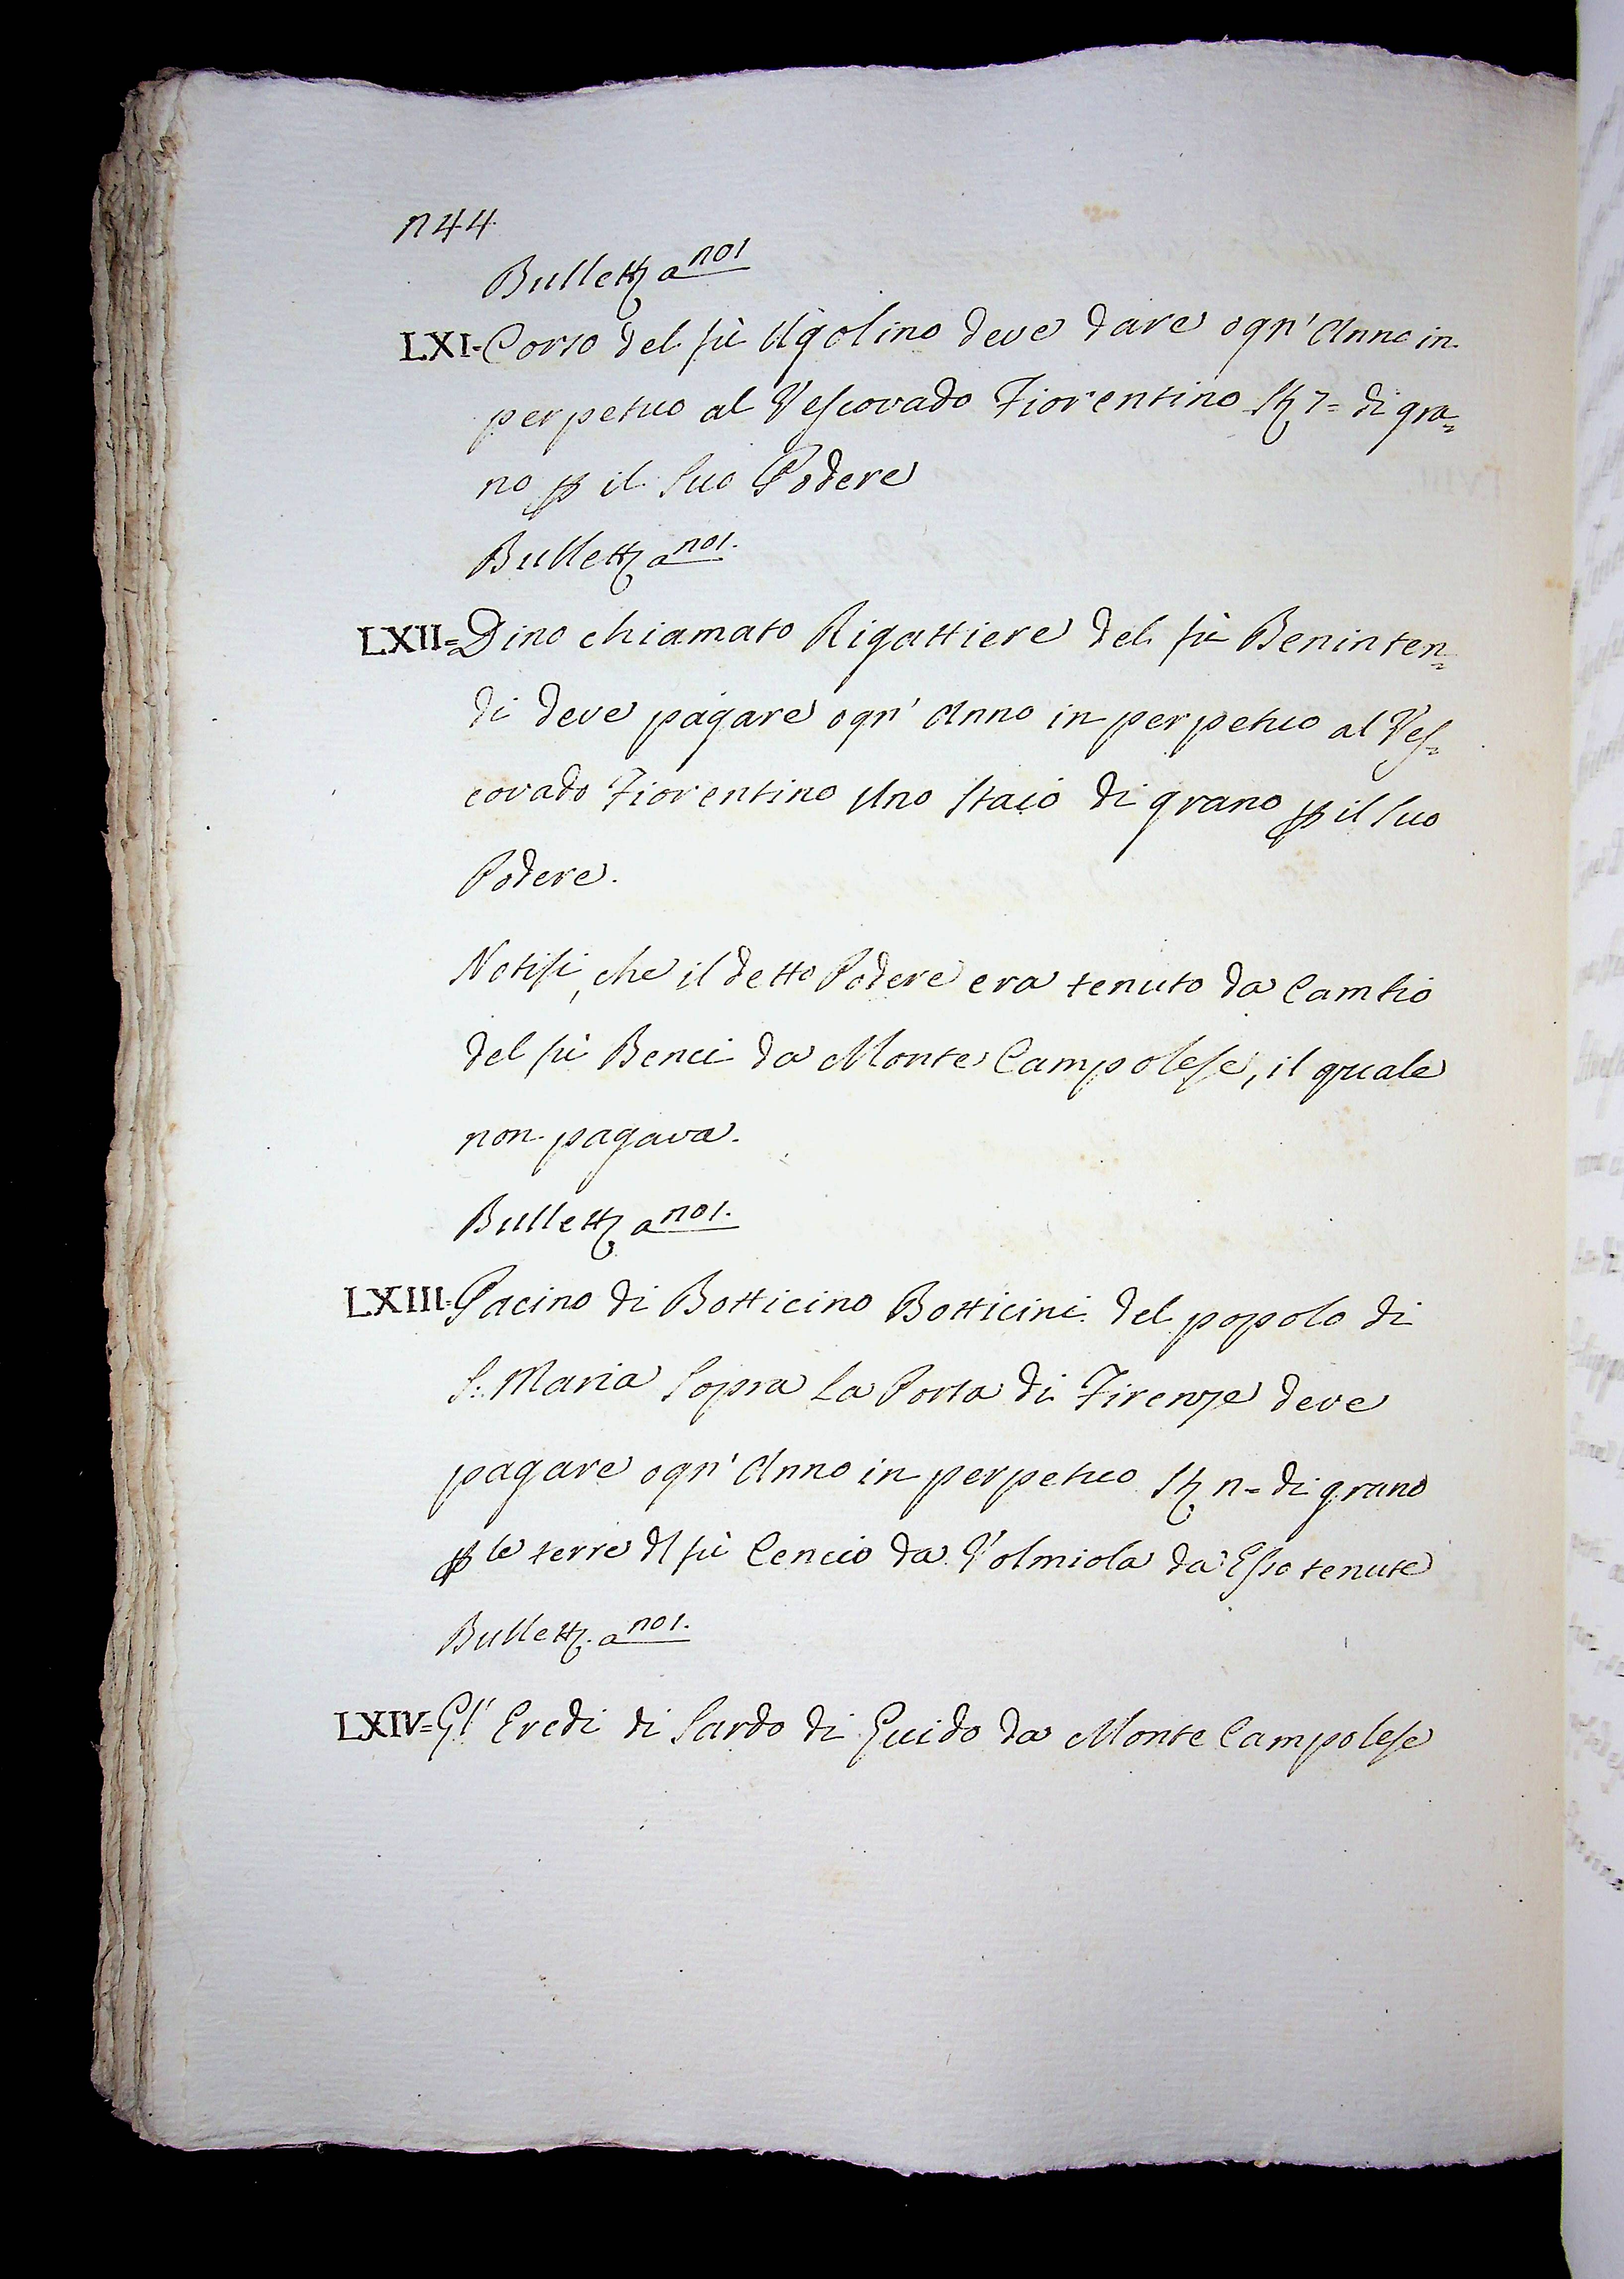 n44
Bullettª no1
LXI- Corso del fù Ugolino deve dare ogn' Anno in
perpetuo al Vescovado Fiorentino St 7= di gra=
no p il suo Podere
Bullettª no1.
LXII= Dino chiamato Rigattiere del fù Beninten=
di deve pagare ogn' Anno in perpetuo al Ves=
covado Fiorentino Uno staio di grano p il suo
Podere.
Notisi, che il detto Podere era tenuto da Cambio
del fù Benci da Monte Campolese, il quale
non pagava.
Bullettª no1.
LXIII- Pacino di Botticino Botticini del popolo di
S. Maria Sopra La Porta di Firenze deve
pagare ogn' Anno in perpetuo St n= di grano
p le terre dl fù Cencio da Volmiola da Esso tenute
Bullettª no1.
LXIV= Gl' Eredi di Sardo di Guido da Monte Campolese